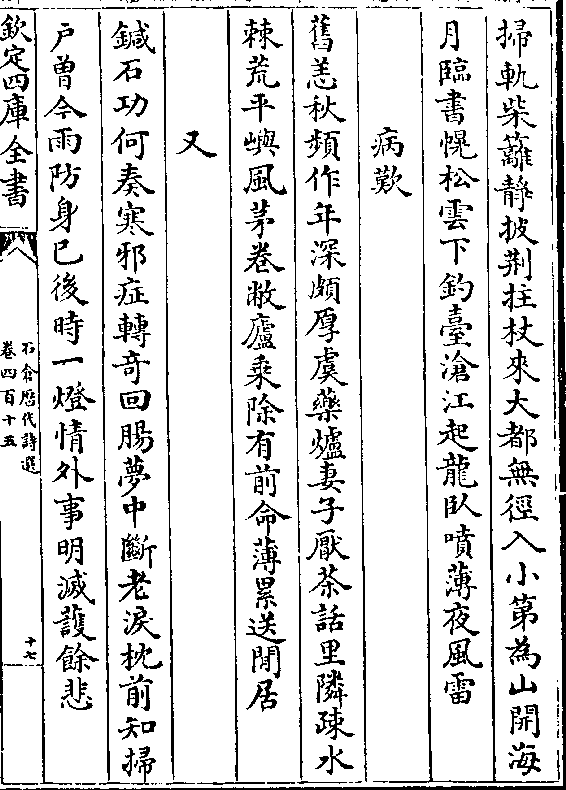 掃軌柴蘺靜披荆拄杖來大都無徑入小第為山開海
月臨書幌松雲下釣臺滄江起龍臥噴薄夜風雷
病歎
舊恙秋頻作年深頗厚虞藥爐妻子厭茶話里隣疎水
棘荒平嶼風茅卷敝廬乘除有前命薄累送閒居
又
鍼石功何奏寒邪症轉竒回腸夢中斷老淚枕前知掃
户曾今雨防身已後時一燈情外事明滅護餘悲
欽定四庫全書
石倉歴代詩選
卷四百十五
十七